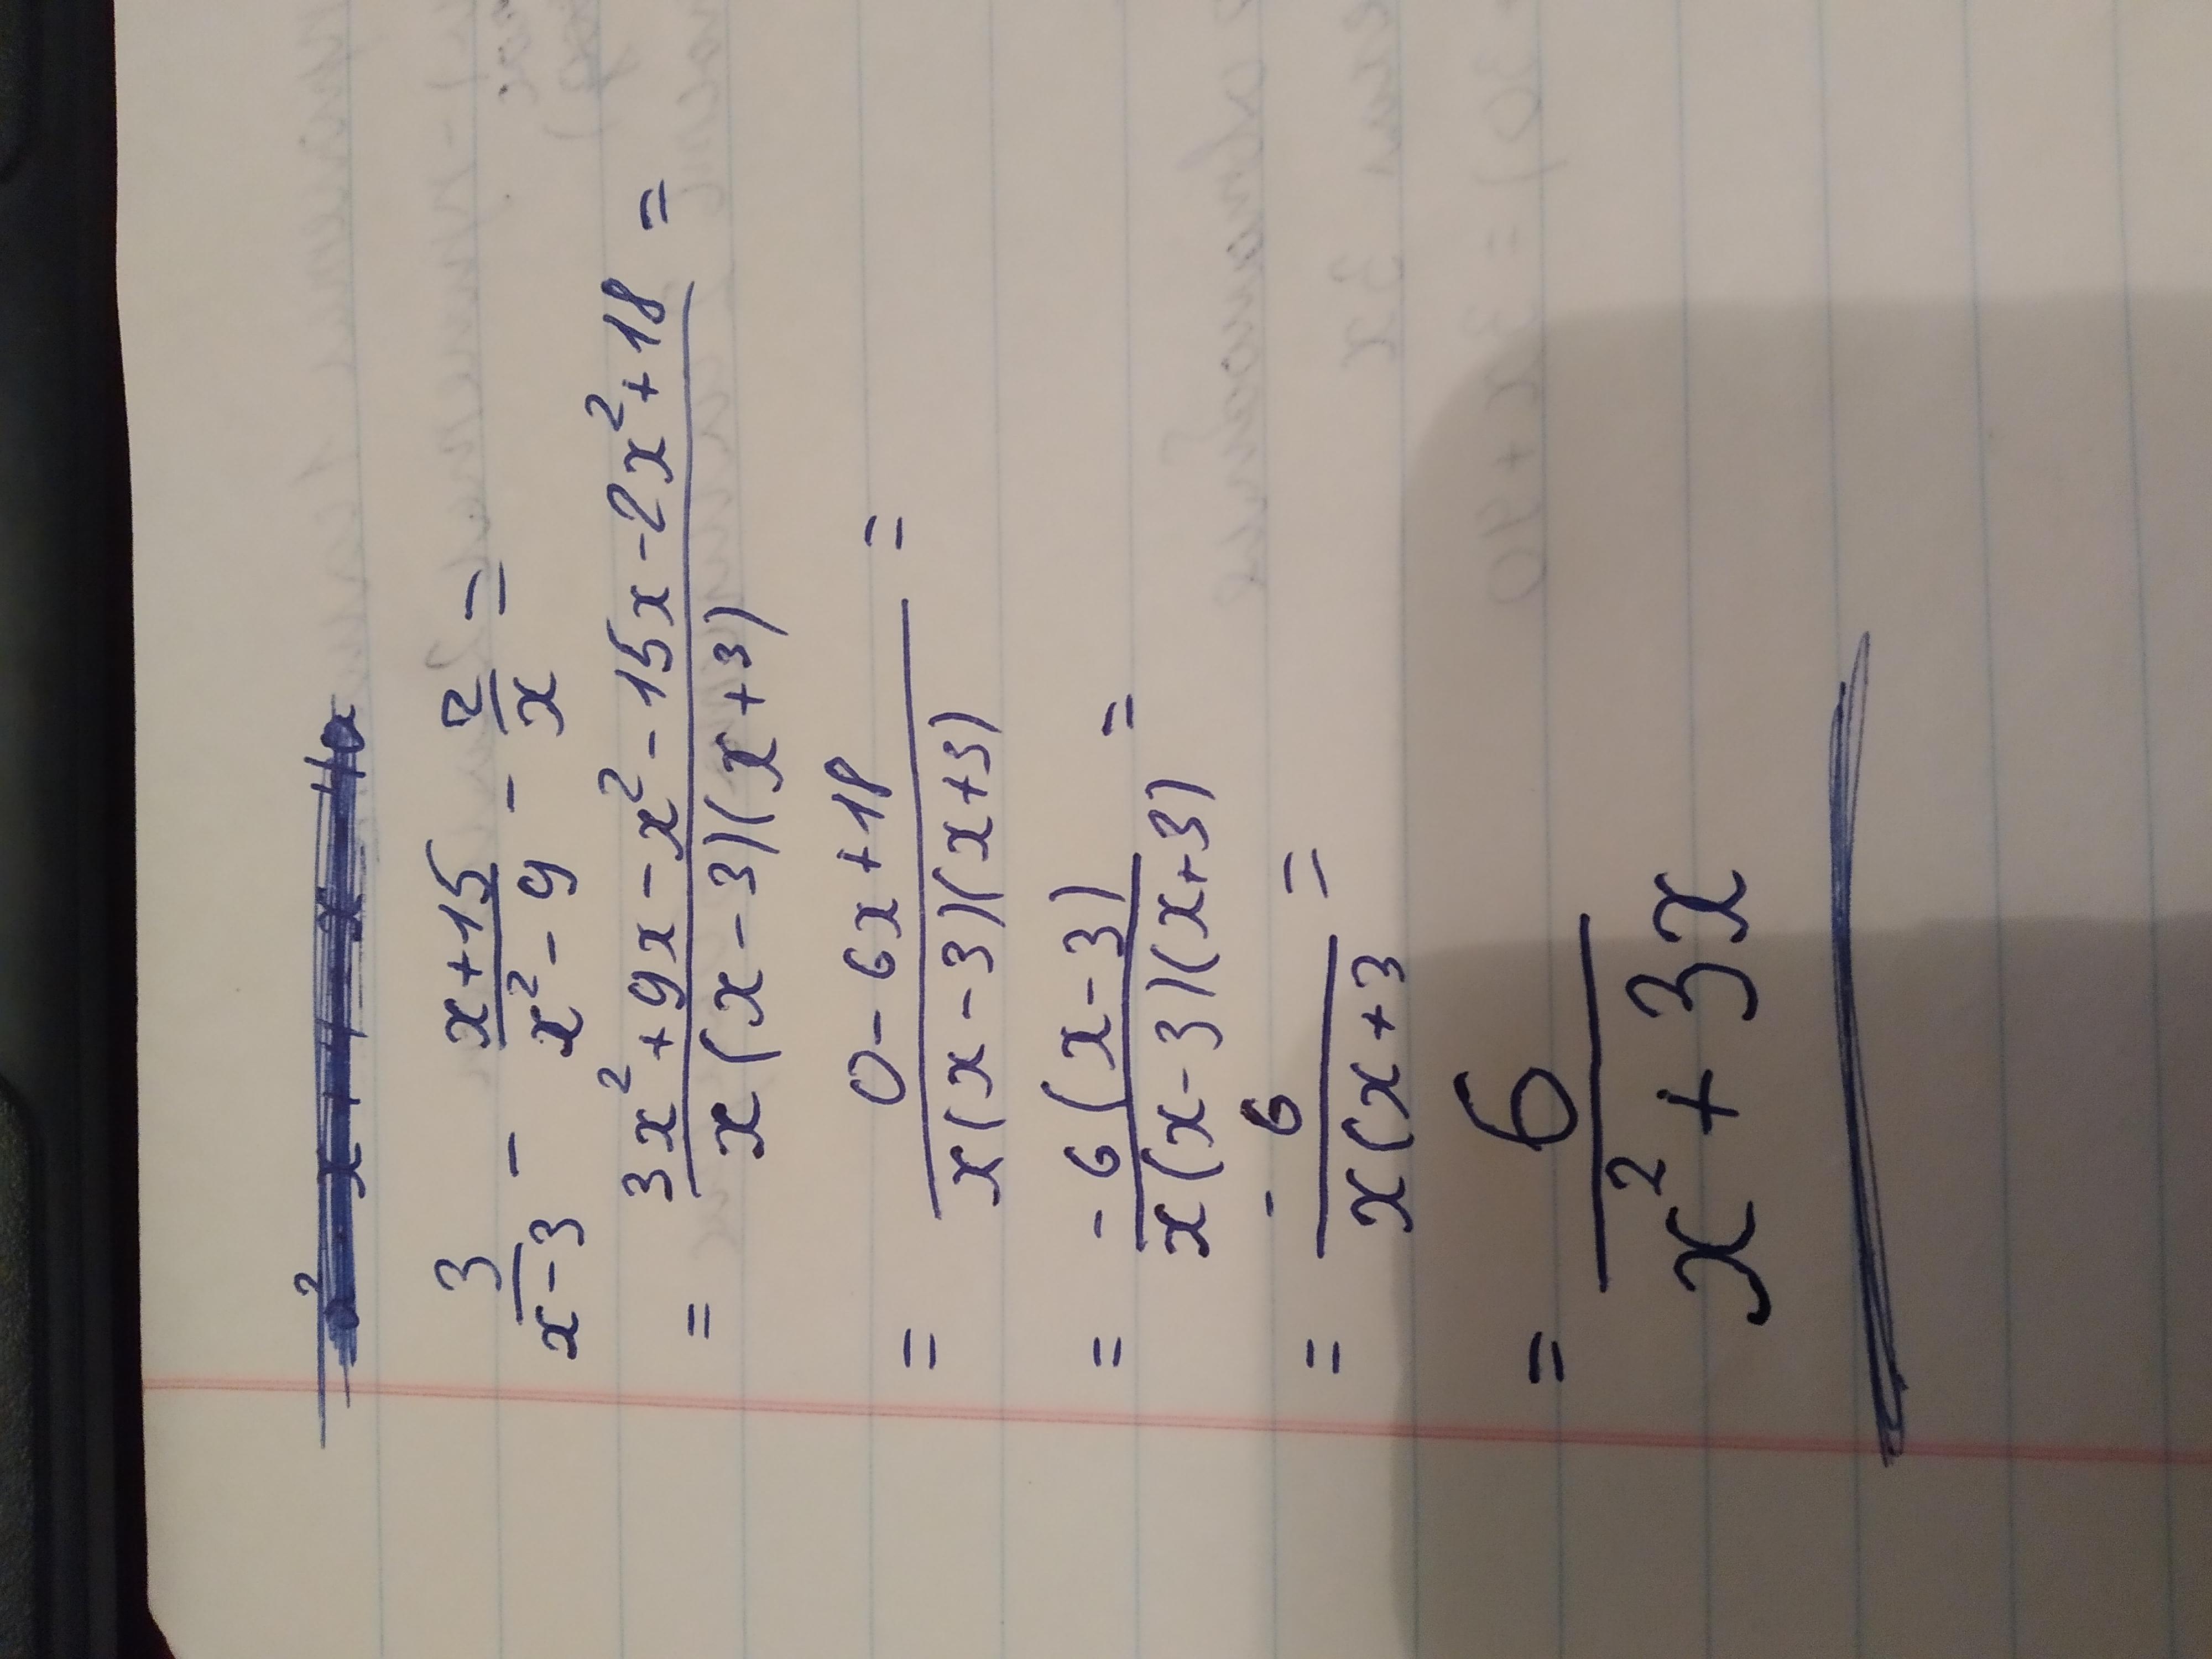 3/(x-3) - (x+15)/(x²-9) - 2/x =
= (3x²+9x-x²-15x-2x²+18)/(x(x-3)(x+3)) =
= (0-6x+18)/(x(x-3)(x+3)) =
= (-6(x-3))/(x(x-3)(x+3)) =
= (-6)/(x(x+3) =
= 6/(x²+3x)